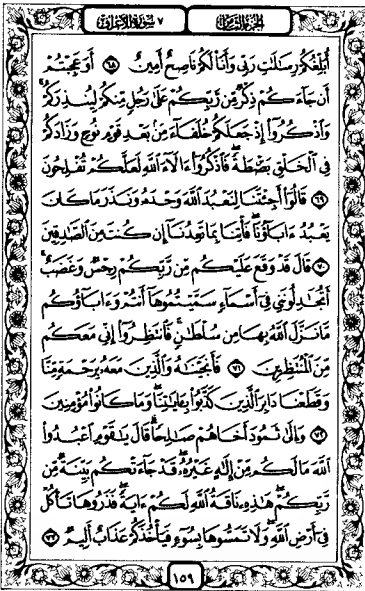 الجزء الثامن
٧ سورة الأعراف
أُبَلِّغُكُمْ رِسَالَاتِ رَبِّي وَأَنَا۠ لَكُمْ نَاصِحٌ أَمِينٌ ٦٨ أَوَعَجِبْتُمْ
أَن جَآءَكُمْ ذِكْرٌ مِّن رَّبِّكُمْ عَلَىٰ رَجُلٍ مِّنكُمْ لِيُنذِرَكُمْ ۚ
وَٱذْكُرُوٓا۟ إِذْ جَعَلَكُمْ خُلَفَآءَ مِنۢ بَعْدِ قَوْمِ نُوحٍ وَزَادَكُمْ
فِى ٱلْخَلْقِ بَصْۜطَةً ۖ فَٱذْكُرُوٓا۟ ءَالَآءَ ٱللَّهِ لَعَلَّكُمْ تُفْلِحُونَ
٦٩ قَالُوٓا۟ أَجِئْتَنَا لِنَعْبُدَ ٱللَّهَ وَحْدَهُۥ وَنَذَرَ مَا كَانَ
يَعْبُدُ ءَابَآؤُنَا ۖ فَأْتِنَا بِمَا تَعِدُنَآ إِن كُنتَ مِنَ ٱلصَّٰدِقِينَ
٧٠ قَالَ قَدْ وَقَعَ عَلَيْكُم مِّن رَّبِّكُمْ رِجْسٌ وَغَضَبٌ ۖ
أَتُجَٰدِلُونَنِى فِىٓ أَسْمَآءٍ سَمَّيْتُمُوهَآ أَنتُمْ وَءَابَآؤُكُم
مَّا نَزَّلَ ٱللَّهُ بِهَا مِن سُلْطَٰنٍ ۚ فَٱنتَظِرُوٓا۟ إِنِّى مَعَكُم
مِّنَ ٱلْمُنتَظِرِينَ ٧١ فَأَنجَيْنَٰهُ وَٱلَّذِينَ مَعَهُۥ بِرَحْمَةٍ مِّنَّا
وَقَطَعْنَا دَابِرَ ٱلَّذِينَ كَذَّبُوا۟ بِـَٔايَٰتِنَا ۖ وَمَا كَانُوا۟ مُؤْمِنِينَ
٧٢ وَإِلَىٰ ثَمُودَ أَخَاهُمْ صَٰلِحًا ۗ قَالَ يَٰقَوْمِ ٱعْبُدُوا۟
ٱللَّهَ مَا لَكُم مِّنْ إِلَٰهٍ غَيْرُهُۥ ۖ قَدْ جَآءَتْكُم بَيِّنَةٌ مِّن
رَّبِّكُمْ ۖ هَٰذِهِۦ نَاقَةُ ٱللَّهِ لَكُمْ ءَايَةً ۖ فَذَرُوهَا تَأْكُلْ
فِىٓ أَرْضِ ٱللَّهِ ۖ وَلَا تَمَسُّوهَا بِسُوٓءٍ فَيَأْخُذَكُمْ عَذَابٌ أَلِيمٌ ٧٣
١٥٩